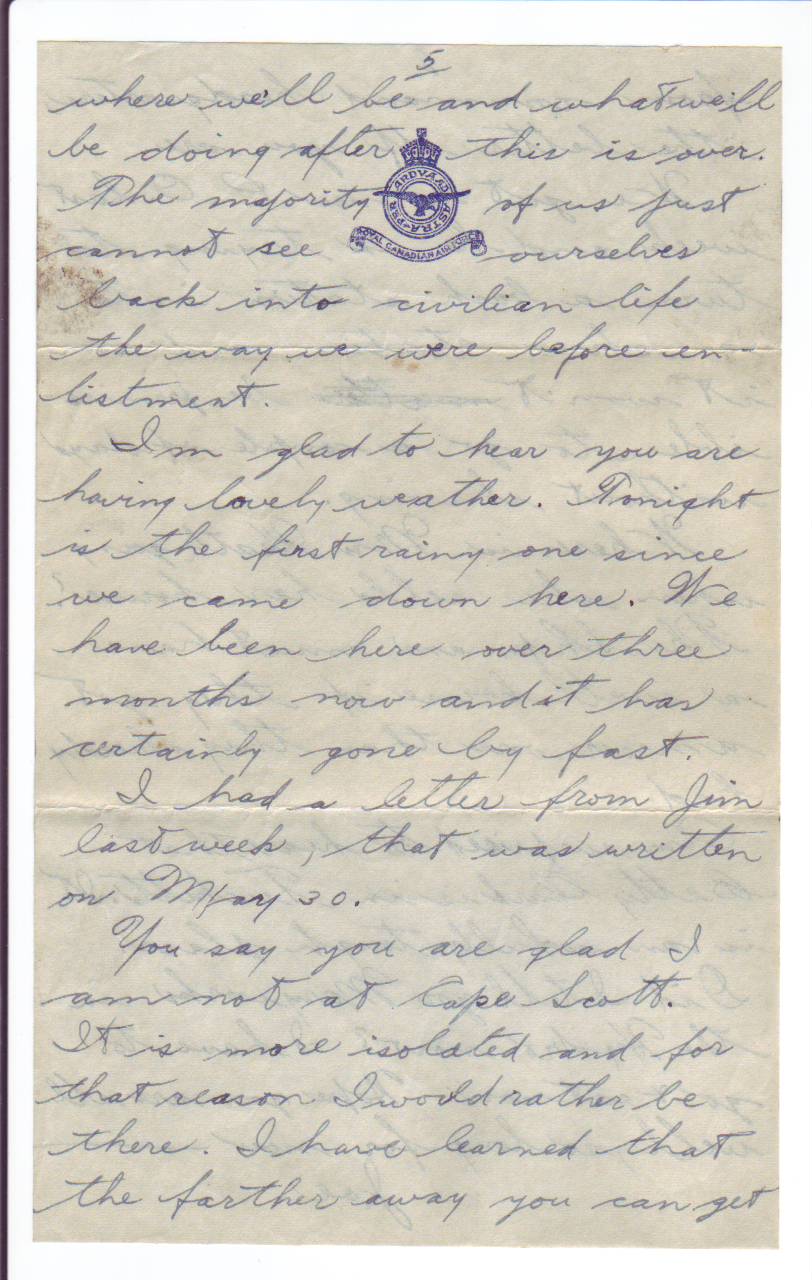 5
where we'll be and what we'll
be doing after this is over.
PER ARDVA AD ASTRA
The majority of us just
ROYAL CANADIAN AIR FORCE
cannot see ourselves
back into civilian life
the way we were before en-
listment.
I'm glad to hear you are
having lovely weather. Tonight
is the first rainy one since
we came down here. We
have been here over three
months now and it has
certainly gone by fast.
I had a letter from Jim
last week, that was written
on May 30.
You say you are glad I
am not at Cape Scott.
It is more isolated and for
that reason I would rather be
there. I have learned that
the farther away you can get